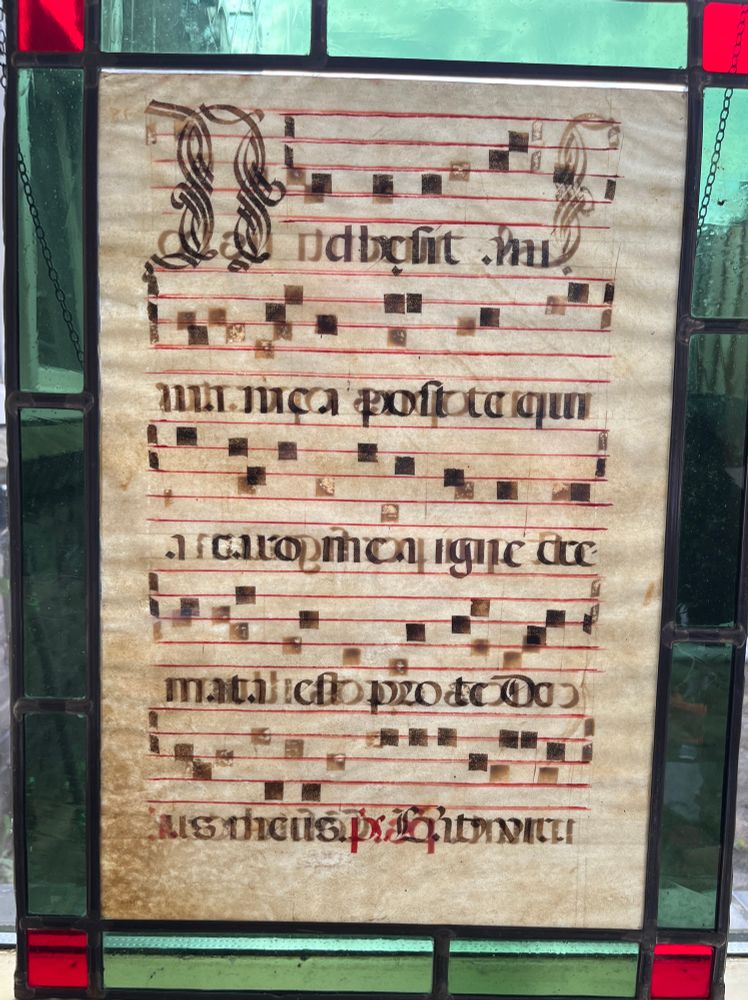 Adhesit ani
ma mea post te qui
a caro mea igne cre
mata est pro te De
us meus. ps.